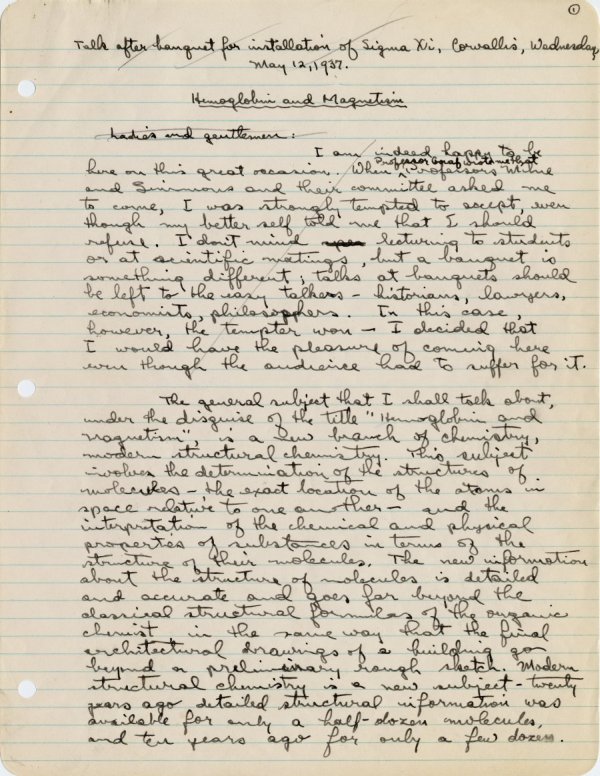 ①
Talk after banquet for installation of Sigma Xi, Corvallis, Wednesday,
May 12, 1937.
Hemoglobin and Magnetism
Ladies and gentlemen:
I am indeed happy to be
here on this great occasion. When Professor Graf wrote me that Professors Milne
and Simmons and their committee asked me
to come, I was strongly tempted to accept, even
though my better self told me that I should
refuse. I don't mind lecturing to students
or at scientific meetings, but a banquet is
something different; talks at banquets should
be left to the easy talkers – historians, lawyers,
economists, philosophers. In this case,
however, the tempter won – I decided that
I would have the pleasure of coming here
even though the audience had to suffer for it.
The general subject that I shall talk about,
under the disguise of the title "Hemoglobin and
Magnetism", is a new branch of chemistry,
modern structural chemistry. This subject
involves the determination of the structures of
molecules – the exact location of the atoms in
space relative to one another – and the
interpretation of the chemical and physical
properties of substances in terms of the
structure of their molecules. The new information
about the structure of molecules is detailed
and accurate and goes far beyond the
classical structural formulas of the organic
chemist in the same way that the final
architectural drawings of a building go
beyond a preliminary rough sketch. Modern
structural chemistry is a new subject – twenty
years ago detailed structural information was
available for only a half-dozen molecules,
and ten years ago for only a few dozen.